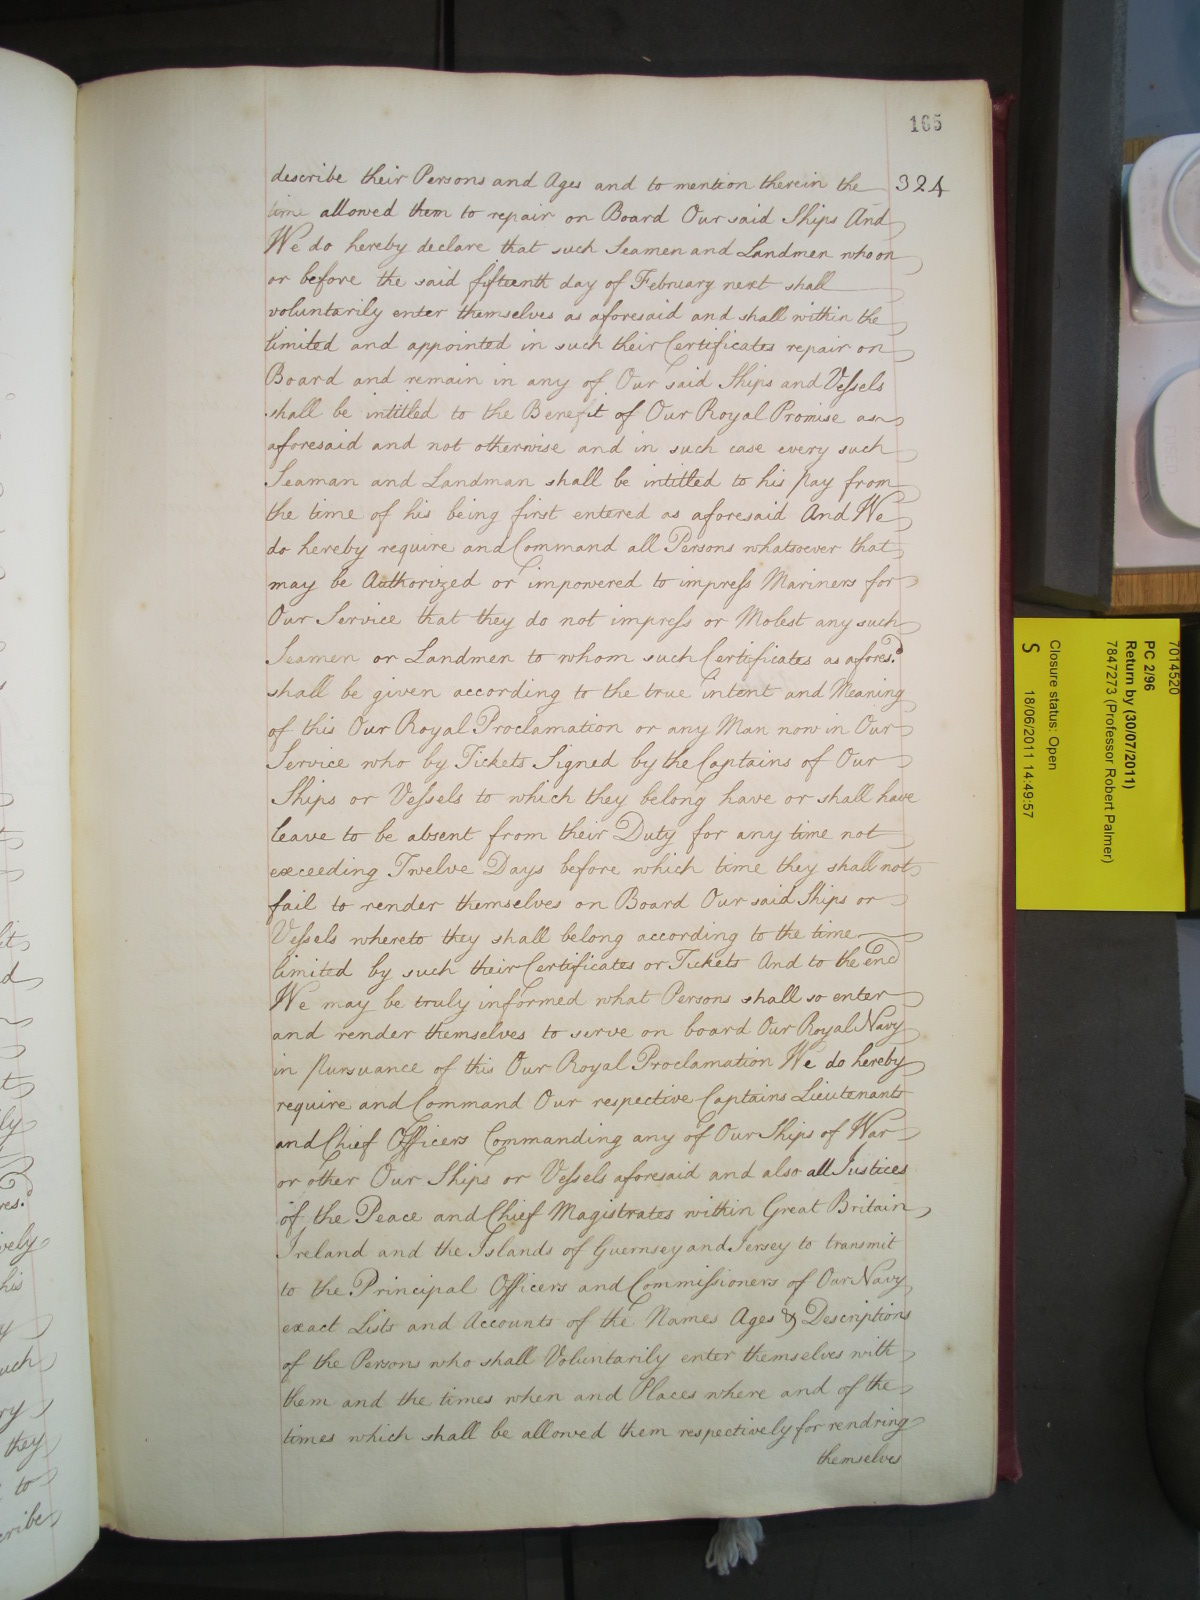 165
324
describe their Persons and Ages and to mention therein the
time allowed them to repair on Board Our said Ships And
We do hereby declare that such Seamen and Landmen who on
or before the said fifteenth day of February next shall
voluntarily enter themselves as aforesaid and shall within the
limited and appointed in such their Certificates repair on
Board and remain in any of Our said Ships and Vessels
shall be intitled to the Benefit of Our Royal Promise as
aforesaid and not otherwise and in such case every such
Seaman and Landman shall be intitled to his pay from
the time of his being first entered as aforesaid And We
do hereby require and Command all Persons whatsoever that
may be Authorized or impowered to impress Mariners for
Our Service that they do not impress or Molest any such
Seamen or Landmen to whom such Certificates as afores.d
shall be given according to the true intent and Meaning
of this Our Royal Proclamation or any Man now in Our
Service who by Tickets Signed by the Captains of Our
Ships or Vessels to which they belong have or shall have
leave to be absent from their Duty for any time not
exceeding Twelve Days before which time they shall not
fail to render themselves on Board Our said Ships or
Vessels whereto they shall belong according to the time
limited by such their Certificates or Tickets And to the end
We may be truly informed what Persons shall so enter
and render themselves to serve on board Our Royal Navy
in pursuance of this Our Royal Proclamation We do hereby
require and Command Our respective Captains Lieutenants
and Chief Officers Commanding any of Our Ships of War
or other Our Ships or Vessels aforesaid and also all Justices
of the Peace and Chief Magistrates within Great Britain
Ireland and the Islands of Guernsey and Jersey to transmit
to the Principal Officers and Commissioners of Our Navy
exact Lists and Accounts of the Names Ages & Descriptions
of the Persons who shall Voluntarily enter themselves with
them and the times when and Places where and of the
times which shall be allowed them respectively for rendring
themselves
7014520
PC 2/96
Return by (30/07/2011)
7847273 (Professor Robert Palmer)
Closure status: Open
S 18/06/2011 14:49:57